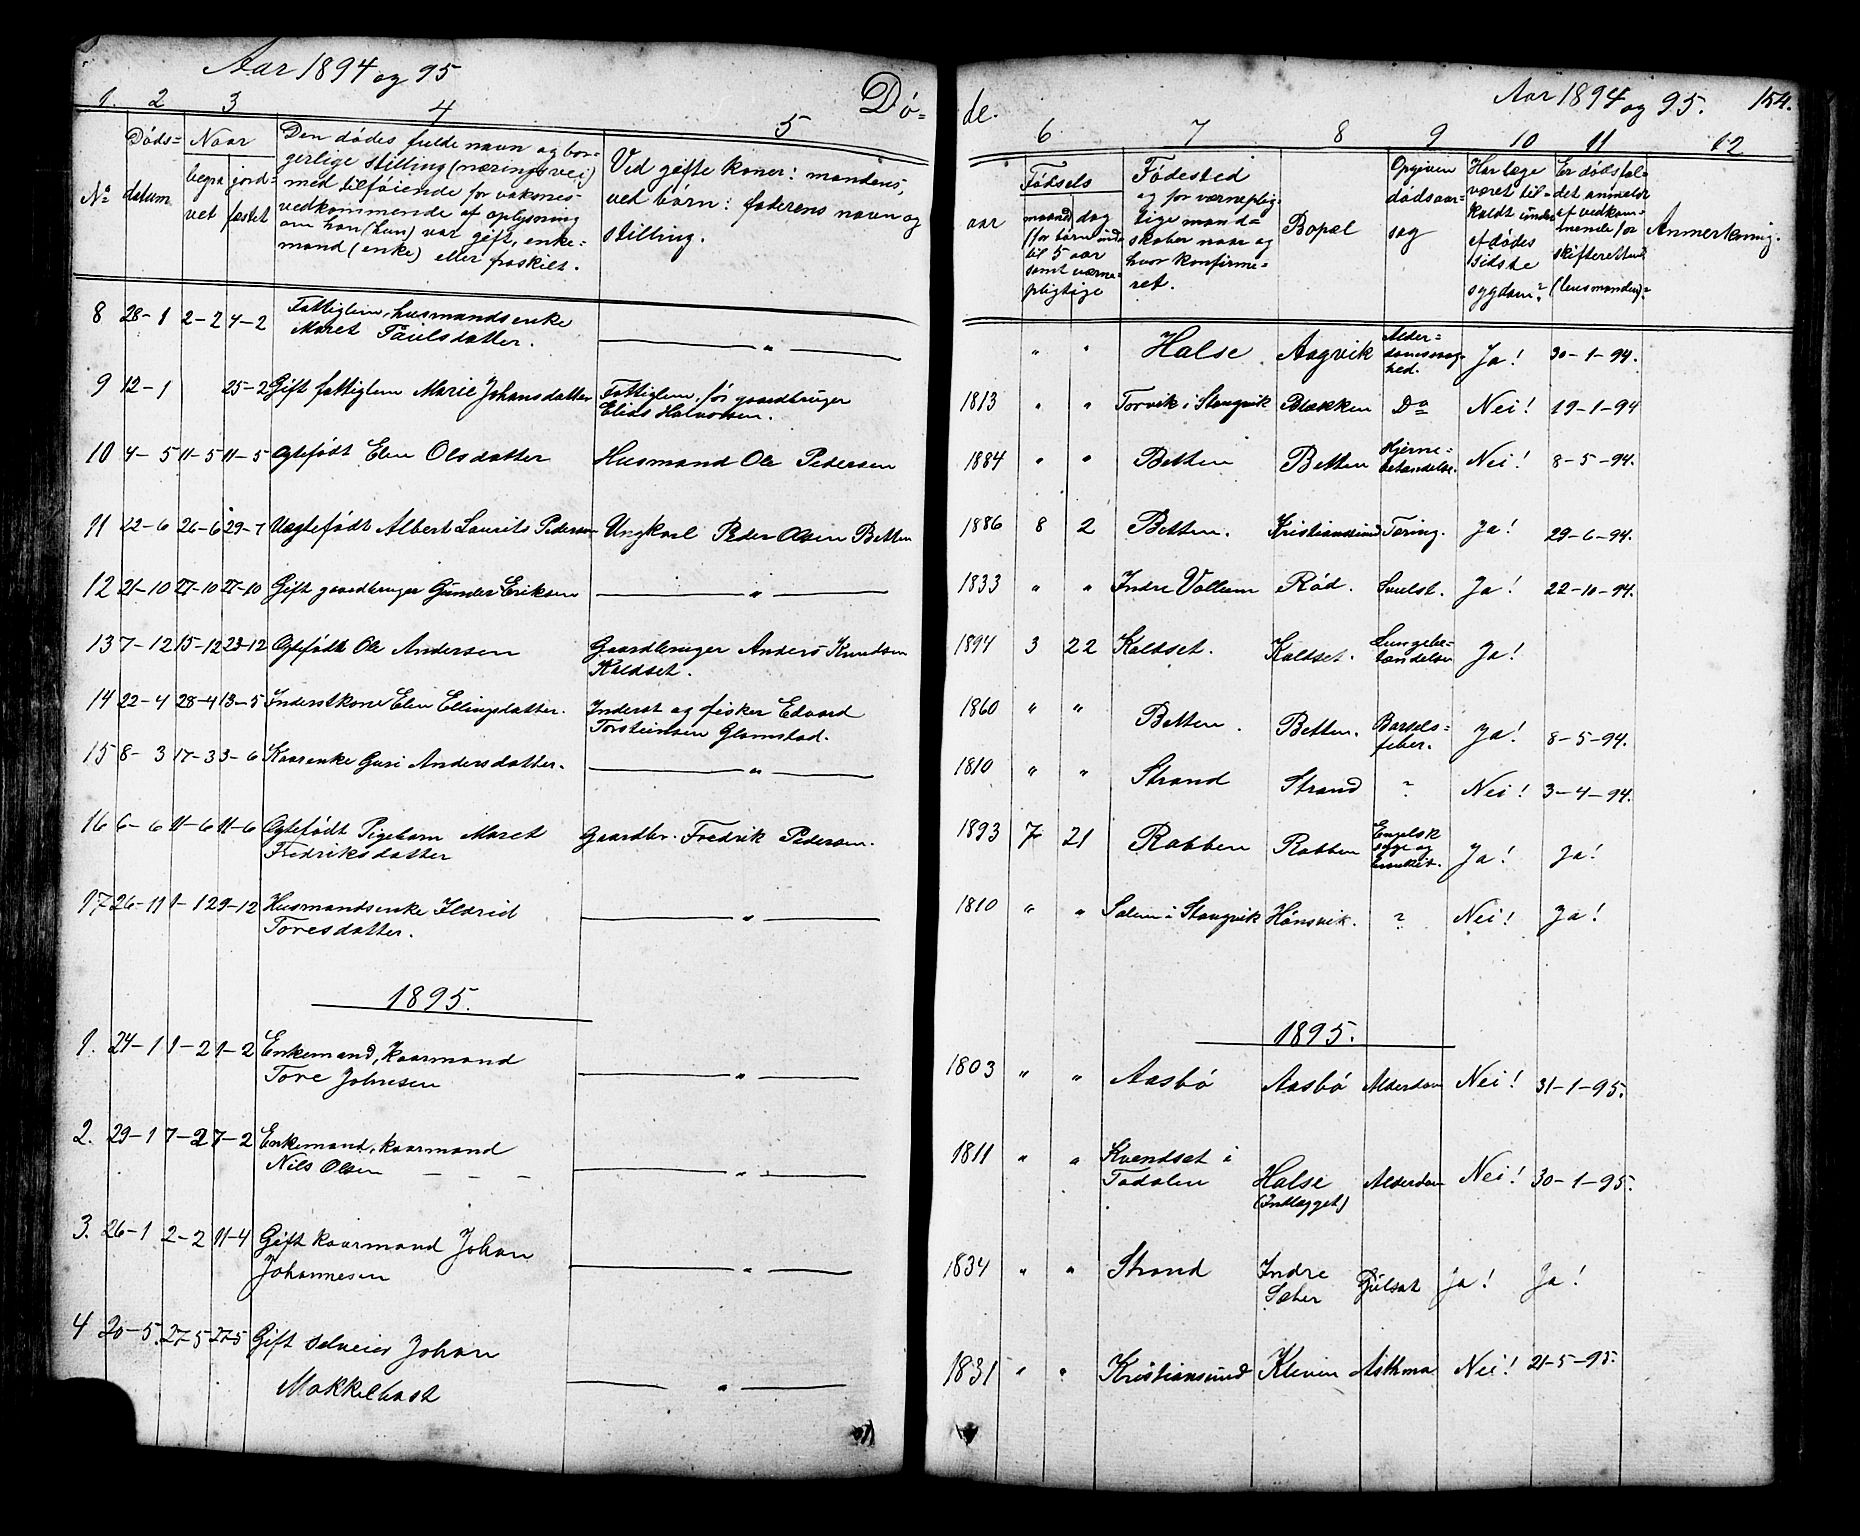 Aar 1894 og 95
Dø-
1. 2 3 4 5
No
Døds-
datum
Naar
begra
vet
jord-
fæstet
Den dødes fulde navn og bor-
gerlige stilling (næringsvei)
med tilføiende for voksnes
vedkommende af oplysning
om han (hun) var gift, enke-
mand (enke) eller fraskilt.
Ved gifte koner: mandens,
ved børn: faderens navn og
stilling.
8 28-1 2-2 4-2 Fattiglem, husmandsenke
Maret Paulsdatter. "
9 12-1 25-2 Gift fattiglem Marie Johansdatter Fattiglem, før gaardbruger
Elias Halvorsen.
10 4-5 11-5 11-5 Ægtefødt Elen Olsdatter Husmand Ole Pedersen
11 22-6 26-6 29-7 Uægtefødt Albert Laurits Pedersen Ungkarl Peder Olsen Betten
12 21-10 27-10 27-10 Gift gaardbruger Gunder Eriksen "
13 7-12 15-12 23-12 Ægtefødt Ole Andersen Gaardbruger Anders Knudsen
Kaldset.
14 22-4 28-4 13-5 Inderstkone Elen Ellingsdatter. Inderst og fisker Edvard
Torsteinsen Glamstad.
15 8-3 17-3 3-6 Kaarenke Guri Andersdatter. "
16 6-6 11-6 11-6 Ægtefødt Pigebarn Maret Gaardbr. Fredrik Pedersen.
Fredriksdatter
17 26-11 1-12 29-12 Husmandsenke Ildrid "
Toresdatter.
1895.
1. 24-1 1-2 1-2 Enkemand, kaarmand
Tore Johnsen "
2. 29-1 7-2 7-2 Enkemand, kaarmand
Nils Olsen "
3. 26-1 2-2 11-4 Gift kaarmand Johan
Johannesen "
4 20-5. 27-5 27-5 Gift selveier Johan
Mokkelbost "
de.
Aar 1894 og 95. 154.
6 7 8 9 10 11 12
Fødsels
aar
maaned dag
(for børn indt.
til 5 aar
samt værne-
pligtige
Fødested
og for værneplig-
tige mand-
skaber naar og
hvor konfirme-
ret.
Bopæl
Opgiven
dødsaar-
sag
Har læge
været til-
kaldt under
afdødes
sidste
sygdom?
Er dødsfal-
det anmeldt
af vedkom-
mende for
skifteretten
(lensmanden)?
Anmerkning.
" " Halse Aagvik Alder-
domssvag-
hed. Ja! 30-1-94.
1813 " " Torvik i Stangvik Blækken Do Nei! 19-1-94
1884 " " Betten Betten Hjerne-
betændelse. Nei! 8-5-94.
1886 8 2 Betten. Kristianssund Tæring. Ja! 29-6-94.
1833 " " Indre Vollum Rød. Svulst. Ja! 22-10-94.
1894 3 22 Kaldset. Kaldset. Lungebe-
tændelse Ja!
1860 " " Betten. Betten. Barsels-
feber. Ja! 8-5-94.
1810 " " Strand Strand ? Nei! 3-4-94.
1893 7 21 Rabben Rabben Engelsk
syge og
Ja! Ja!
1810 " " i Stangvik Hønsvik. ? Nei! Ja!
1895.
1803 " " Aasbø Aasbø Alderdom Nei! 31-1-95.
1811 " " Kvendset i
Todalen Halse
(Indlagget) Alderdom Nei! 30-1-95.
1834 " " Strand Indre
Sæter Gulsot Ja! Ja!
1831 " " Kristianssund Kleven Asthma Nei! 21-5-95.